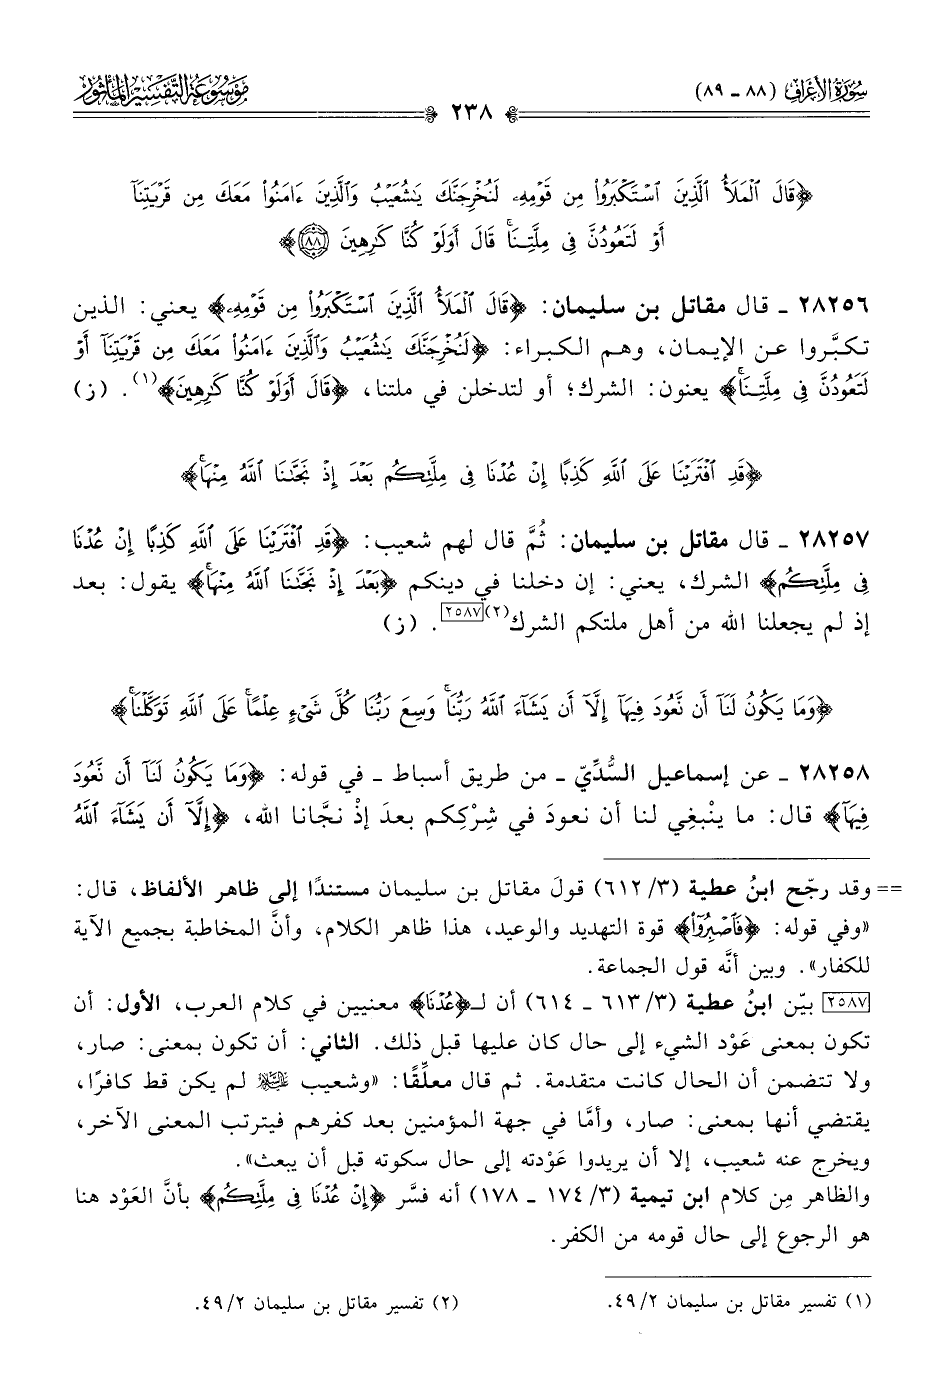 سورة الأعراف (٨٨ - ٨٩)
٢٣٨
موسوعة التفسير المأثور
﴿قَالَ ٱلْمَلَأُ ٱلَّذِينَ ٱسْتَكْبَرُوا۟ مِن قَوْمِهِۦ لَنُخْرِجَنَّكَ يَـٰشُعَيْبُ وَٱلَّذِينَ ءَامَنُوا۟ مَعَكَ مِن قَرْيَتِنَآ
أَوْ لَتَعُودُنَّ فِى مِلَّتِنَا ۚ قَالَ أَوَلَوْ كُنَّا كَـٰرِهِينَ ٨٨﴾
٢٨٢٥٦ - قال مقاتل بن سليمان: ﴿قَالَ ٱلْمَلَأُ ٱلَّذِينَ ٱسْتَكْبَرُوا۟ مِن قَوْمِهِۦ﴾ يعني: الذين
تكبَّروا عن الإيمان، وهم الكبراء: ﴿لَنُخْرِجَنَّكَ يَـٰشُعَيْبُ وَٱلَّذِينَ ءَامَنُوا۟ مَعَكَ مِن قَرْيَتِنَآ أَوْ
لَتَعُودُنَّ فِى مِلَّتِنَا ۚ﴾ يعنون: الشرك؛ أو لتدخلن في ملتنا، ﴿قَالَ أَوَلَوْ كُنَّا كَـٰرِهِينَ﴾(١). (ز)
﴿قَدِ ٱفْتَرَيْنَا عَلَى ٱللَّهِ كَذِبًا إِنْ عُدْنَا فِى مِلَّتِكُم بَعْدَ إِذْ نَجَّىٰنَا ٱللَّهُ مِنْهَا ۚ﴾
٢٨٢٥٧ - قال مقاتل بن سليمان: ثُمَّ قال لهم شعيب: ﴿قَدِ ٱفْتَرَيْنَا عَلَى ٱللَّهِ كَذِبًا إِنْ عُدْنَا
فِى مِلَّتِكُم﴾ الشرك، يعني: إن دخلنا في دينكم ﴿بَعْدَ إِذْ نَجَّىٰنَا ٱللَّهُ مِنْهَا ۚ﴾ يقول: بعد
إذ لم يجعلنا الله من أهل ملتكم الشرك(٢)[٢٥٨٧]. (ز)
﴿وَمَا يَكُونُ لَنَآ أَن نَّعُودَ فِيهَآ إِلَّآ أَن يَشَآءَ ٱللَّهُ رَبُّنَا ۚ وَسِعَ رَبُّنَا كُلَّ شَىْءٍ عِلْمًا ۚ عَلَى ٱللَّهِ تَوَكَّلْنَا ۚ﴾
٢٨٢٥٨ - عن إسماعيل السُّدِّيّ - من طريق أسباط - في قوله: ﴿وَمَا يَكُونُ لَنَآ أَن نَّعُودَ
فِيهَآ﴾ قال: ما ينْبغِي لنا أن نعودَ في شِرْككم بعدَ إذْ نجَّانا الله، ﴿إِلَّآ أَن يَشَآءَ ٱللَّهُ
== وقد رجّح ابنُ عطية (٣/ ٦١٢) قولَ مقاتل بن سليمان مستندًا إلى ظاهر الألفاظ، قال:
«وفي قوله: ﴿فَٱصْبِرُوا۟﴾ قوة التهديد والوعيد، هذا ظاهر الكلام، وأنَّ المخاطبة بجميع الآية
للكفار». وبين أنَّه قول الجماعة.
[٢٥٨٧] بيّن ابنُ عطية (٣/ ٦١٣ - ٦١٤) أن لـ﴿عُدْنَا﴾ معنيين في كلام العرب، الأول: أن
تكون بمعنى عَوْد الشيء إلى حال كان عليها قبل ذلك. الثاني: أن تكون بمعنى: صار،
ولا تتضمن أن الحال كانت متقدمة. ثم قال معلِّقًا: «وشعيب ﵇ لم يكن قط كافرًا،
يقتضي أنها بمعنى: صار، وأمَّا في جهة المؤمنين بعد كفرهم فيترتب المعنى الآخر،
ويخرج عنه شعيب، إلا أن يريدوا عَوْدته إلى حال سكوته قبل أن يبعث».
والظاهر مِن كلام ابن تيمية (٣/ ١٧٤ - ١٧٨) أنه فسَّر ﴿إِنْ عُدْنَا فِى مِلَّتِكُم﴾ بأنَّ العَوْد هنا
هو الرجوع إلى حال قومه من الكفر.
(١) تفسير مقاتل بن سليمان ٤٩/٢.
(٢) تفسير مقاتل بن سليمان ٤٩/٢.